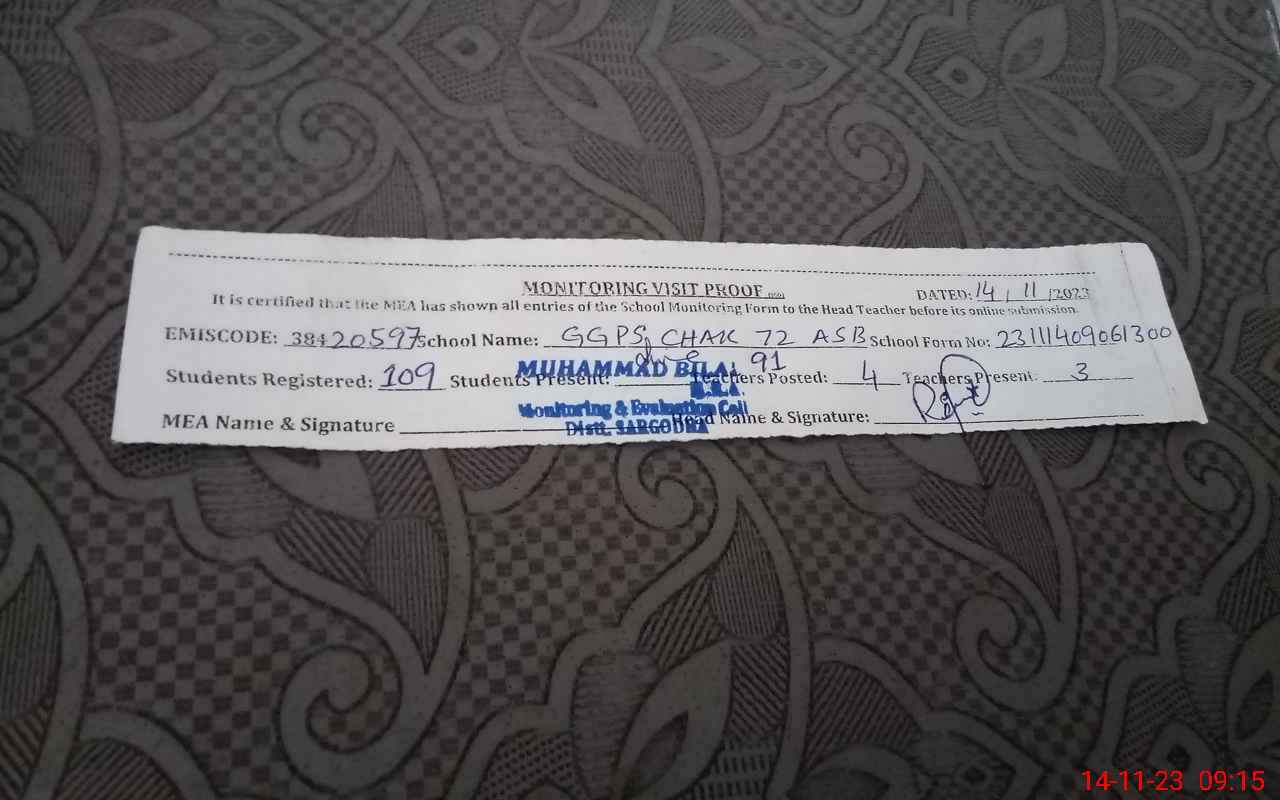 MONITORING VISIT PROOF
DATED: 14 / 11 /2023
It is certified that the MEA has shown all entries of the School Monitoring Form to the Head Teacher before its online submission.
EMISCODE: 38420597 School Name: GGPS, CHAK 72 ASB School Form No: 23111409061300
Students Registered: 109 Students Present: 91 Teachers Posted: 4 Teachers Present: 3
MUHAMMAD BILAL
Monitoring & Evaluation Cell
Distt. SARGODHA
MEA Name & Signature Head Name & Signature:
14-11-23 09:15